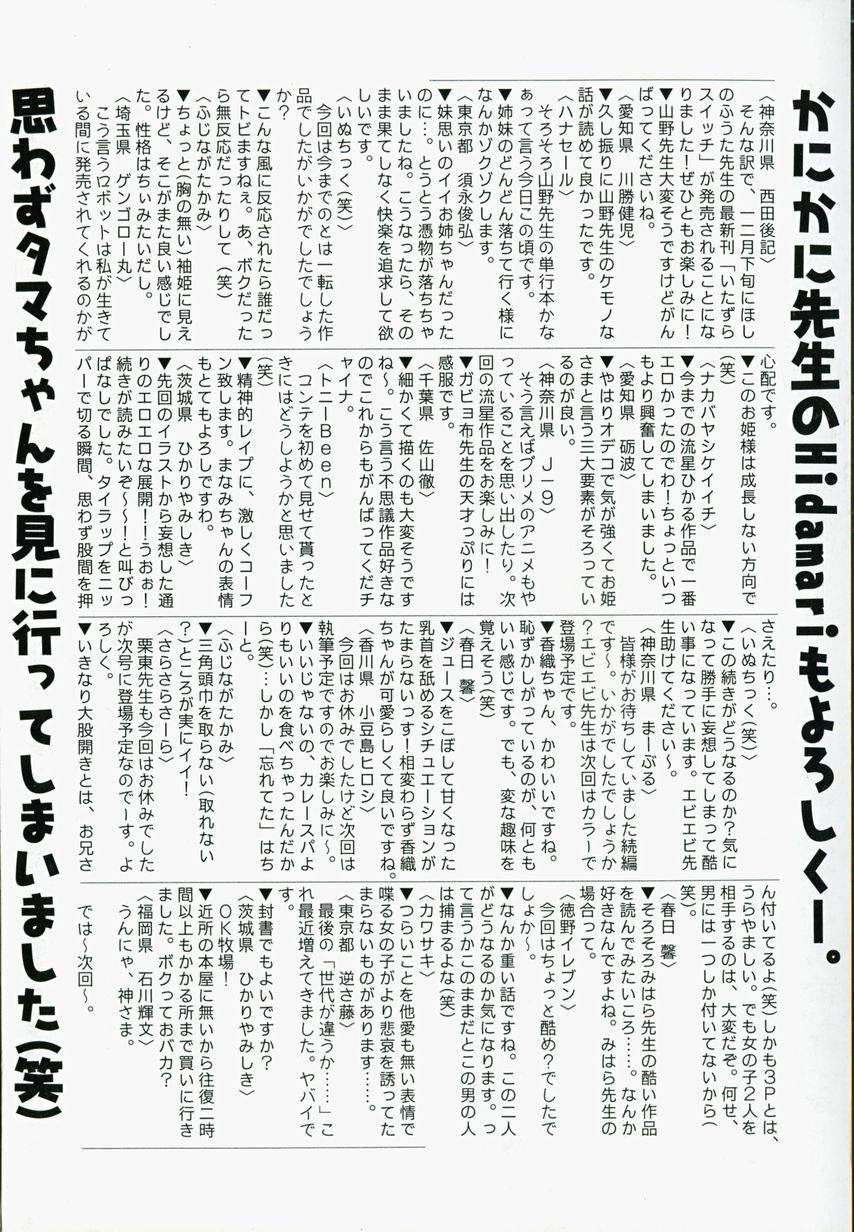 かにかに先生のHidamariもよろしくー。
〈神奈川県　西田後記〉
そんな訳で、一二月下旬にほし
のふうた先生の最新刊「いたずら
スイッチ」が発売されることにな
りました！ぜひともお楽しみに！
▼山野先生大変そうですけどがん
ばってくださいね。
〈愛知県　川勝健児〉
▼久し振りに山野先生のケモノな
話が読めて良かったです。
〈ハナセール〉
そろそろ山野先生の単行本かな
ぁって言う今日この頃です。
▼姉妹のどんどん落ちて行く様に
なんかゾクゾクします。
〈東京都　須永俊弘〉
▼妹思いのイイお姉ちゃんだった
のに…。とうとう憑物が落ちちゃ
いましたね。こうなったら、その
まま果てしなく快楽を追求して欲
しいです。
〈いぬちっく（笑）〉
今回は今までのとは一転した作
品でしたがいかがでしたでしょう
か？
▼こんな風に反応されたら誰だっ
てトビますねぇ。あ、ボクだった
ら無反応だったりして（笑）
〈ふじながたかみ〉
▼ちょっと（胸の無い）袖姫に見え
るけど、そこがまた良い感じでし
た。性格はちぃみたいだし。
〈埼玉県　ゲンゴロー丸〉
こう言うロボットは私が生きて
いる間に発売されてくれるのかが
心配です。
▼このお姫様は成長しない方向で
（笑）
〈ナカバヤシケイイチ〉
▼今までの流星ひかる作品で一番
エロかったのでわ！ちょっといつ
もより興奮してしまいました。
〈愛知県　砺波〉
▼やはりオデコで気が強くてお姫
さまと言う三大要素がそろってい
るのが良い。
〈神奈川県　J－9〉
そう言えばプリメのアニメもや
っていることを思い出したり。次
回の流星作品をお楽しみに！
▼ガビョ布先生の天才っぷりには
感服です。
〈千葉県　佐山徹〉
▼細かくて描くのも大変そうです
ね〜。こう言う不思議作品好きな
のでこれからもがんばってくだチ
ャイナ。
〈トニーBeen〉
コンテを初めて見せて貰ったと
きにはどうしようかと思いました
（笑）
▼精神的レイプに、激しくコーフ
ン致します。まなみちゃんの表情
もとてもよろしですわ。
〈茨城県　ひかりやみしき〉
▼先回のイラストから妄想した通
りのエロエロな展開！！うおぉ！
続きが読みたいぞ〜〜！と叫びっ
ぱなしでした。タイラップをニッ
パーで切る瞬間、思わず股間を押
さえたり…。
〈いぬちっく（笑）〉
▼この続きがどうなるのか？気に
なって勝手に妄想してしまって酷
い事になっています。エビエビ先
生助けてください〜。
〈神奈川県　まーぶる〉
皆様がお待ちしていました続編
です〜。いかがでしたでしょうか
？エビエビ先生は次回はカラーで
登場予定です。
▼香織ちゃん、かわいいですね。
恥ずかしがっているのが、何とも
いい感じです。でも、変な趣味を
覚えそう（笑）
〈春日　馨〉
▼ジュースをこぼして甘くなった
乳首を舐めるシチュエーションが
たまらないっす！相変わらず香織
ちゃんが可愛らしくて良いですね。
〈香川県　小豆島ヒロシ〉
今回はお休みでしたけど次回は
執筆予定ですのでお楽しみに〜。
▼いいじゃないの、カレースパよ
りもいいのを食べちゃったんだか
ら（笑）…しかし「忘れてた」はち
ーと。
〈ふじながたかみ〉
▼三角頭巾を取らない（取れない
？）ところが実にイイ！
〈さらさらさーら〉
栗東先生も今回はお休みでした
が次号に登場予定なのでーす。よ
ろしく。
▼いきなり大股開きとは、お兄さ
ん付いてるよ（笑）しかも3Pとは、
うらやましい。でも女の子2人を
相手するのは、大変だぞ。何せ、
男には一つしか付いてないから（
笑）。
〈春日　馨〉
▼そろそろみはら先生の酷い作品
を読んでみたいころ……。なんか
好きなんですよね。みはら先生の
場合って。
〈徳野イレブン〉
今回はちょっと酷め？でしたで
しょか〜。
▼なんか重い話ですね。この二人
がどうなるのか気になります。っ
て言うかこのままだとこの男の人
は捕まるよな（笑）
〈カワサキ〉
▼つらいことを他愛も無い表情で
喋る女の子がより悲哀を誘ってた
まらないものがあります……。
〈東京都　逆さ藤〉
最後の「世代が違うか……」こ
れ最近増えてきました。ヤバイで
す。
▼封書でもよいですか？
〈茨城県　ひかりやみしき〉
OK牧場！
▼近所の本屋に無いから往復二時
間以上もかかる所まで買いに行き
ました。ボクっておバカ？
〈福岡県　石川輝文〉
うんにゃ、神さま。
では〜次回〜。
思わずタマちゃんを見に行ってしまいました（笑）